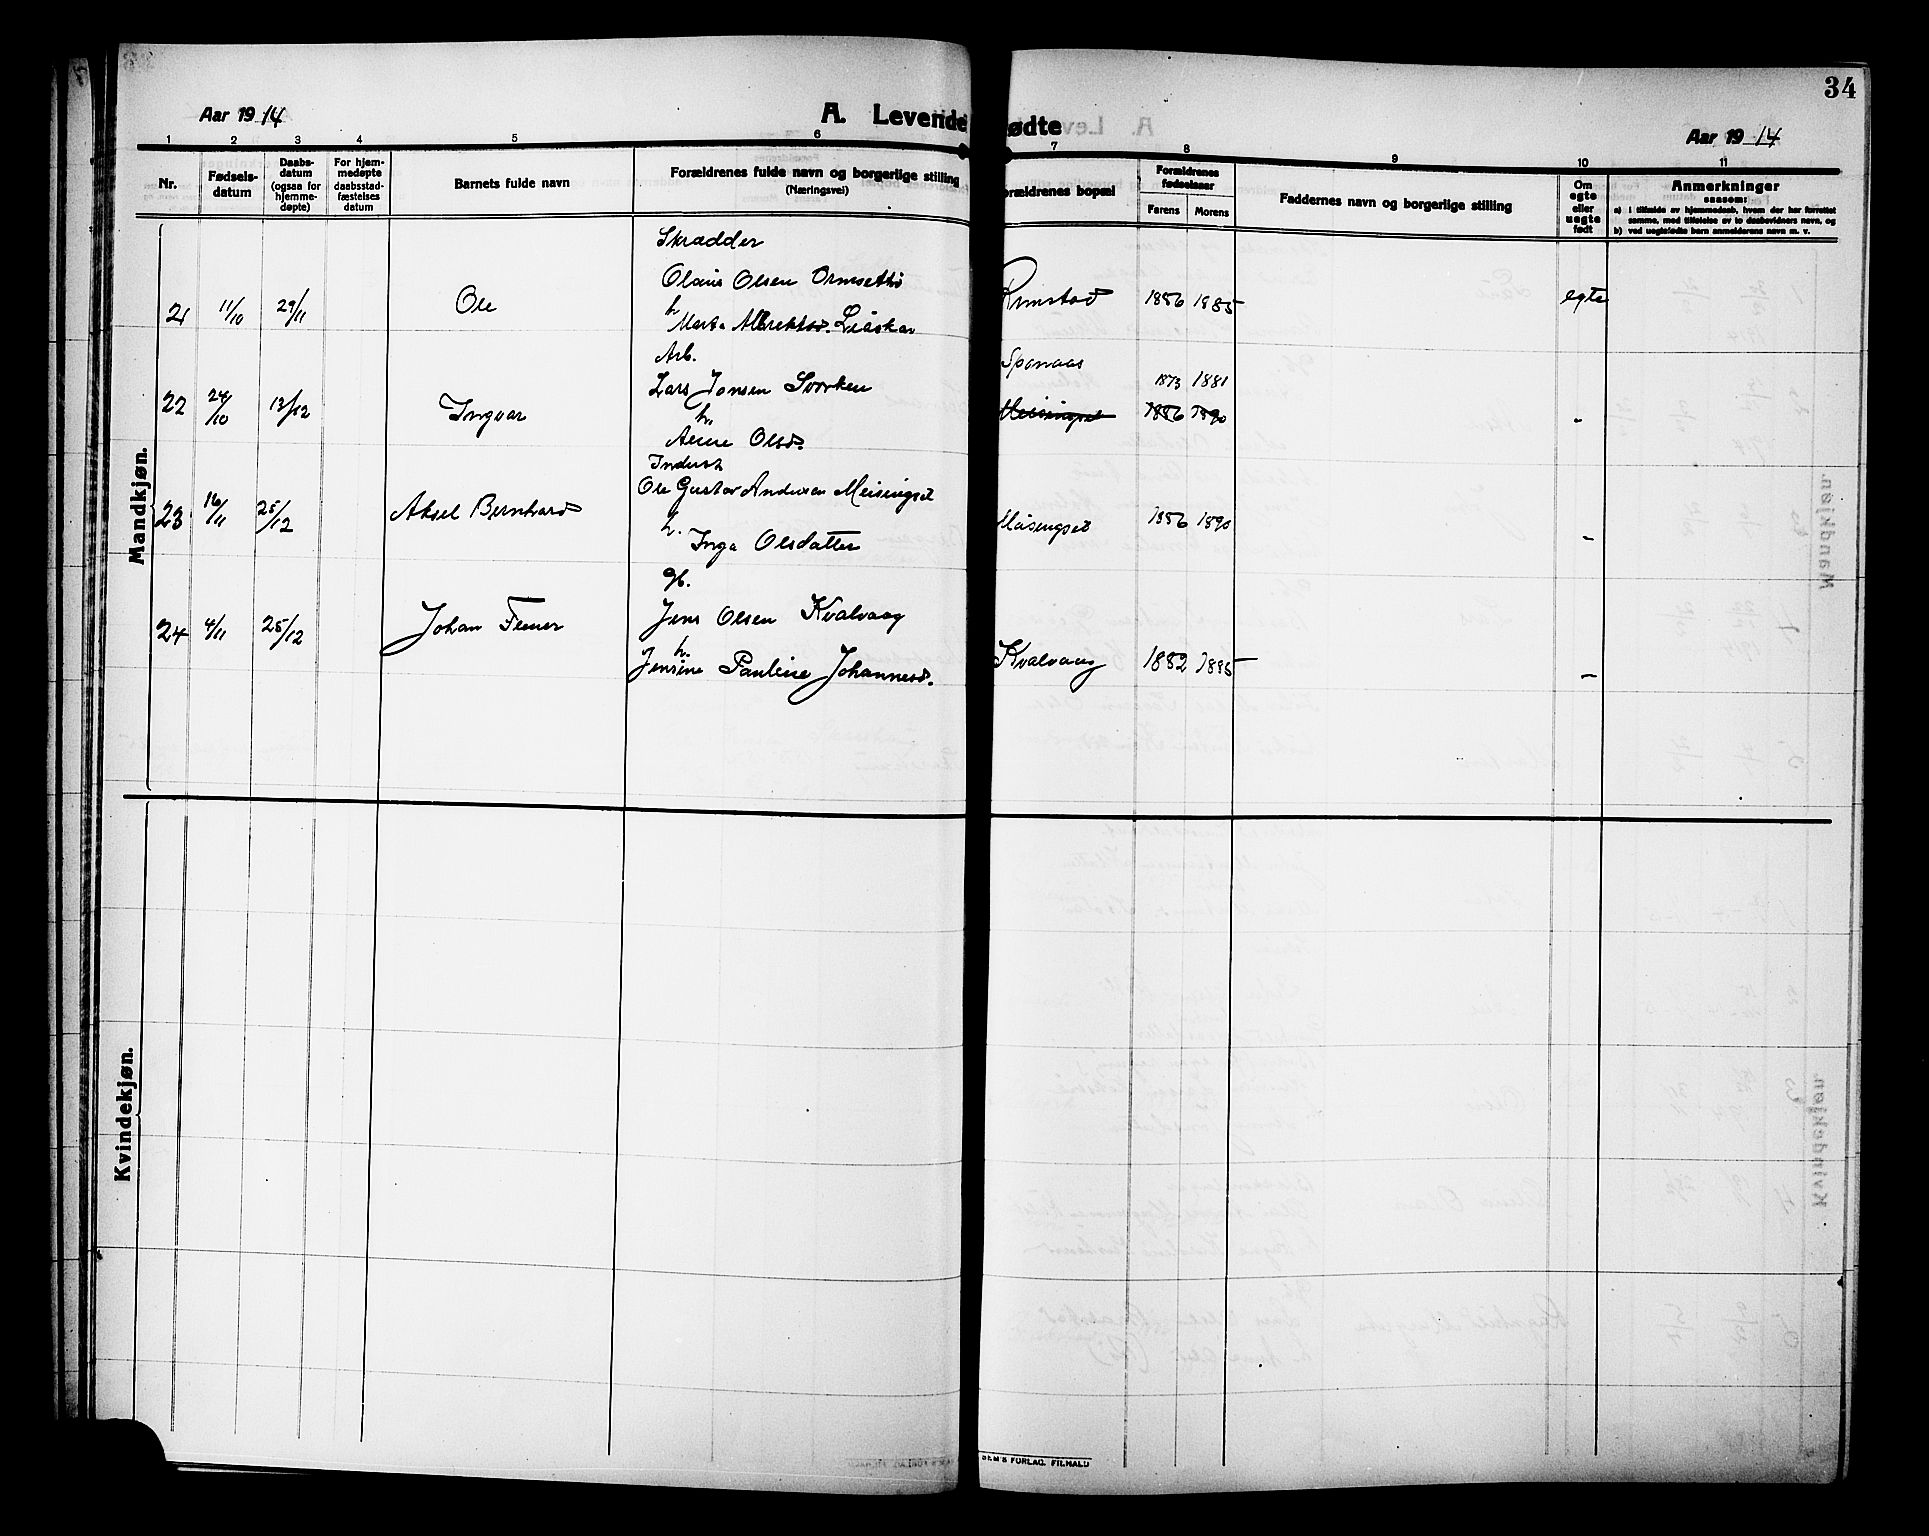 34
Aar 1914
A. Levende
ødte
Aar 1914
1 2 3 4 5 6 7 8 9 10 11
Nr.
Fødsels-
datum
Daabs-
datum
(ogsaa for
hjemme-
døpte)
For hjem-
medøpte
daabsstad-
fæstelses
datum
Barnets fulde navn
Forældrenes fulde navn og borgerlige stilling
(Næringsvei)
orældrenes bopæl
Forældrenes
fødselsaar
Farens Morens
Faddernes navn og borgerlige stilling
Om
egte
eller
uegte
født
Anmerkninger
saasom:
a) i tilfælde av hjemmedaab, hvem der har forrettet
samme, med tilføielse av to daabsvidners navn, og
b) ved uegtefødte barn anmelderens navn m. v.
Mandkjøn.
Skrædder
Olaus Olsen Ormsettrø
21 11/10 29/11 Ole Rimstad 1886 1885 egte
h. Marta Albrektsd. Liaskar
Arb. Spanaas
Lars Jonsen Svorken 1873 1881
22 24/10 13/12 Ingvar h. Meisingset 1886 1890 "
Anne Olsd.
Indust
Ole Gustav Andersen Meisingset
23 16/11 25/12 Aksel Bernhard h. Meisingset 1886 1890 -
Inga Olsdatter
Gb.
24 4/11 25/12 Johan Jens Olsen Kvalvaag
h. Kvalvaag 1882 1885 -
Jensine Pauline Johannesd.
Kvindekjøn.
SEN'S FORLAG. FILHALD